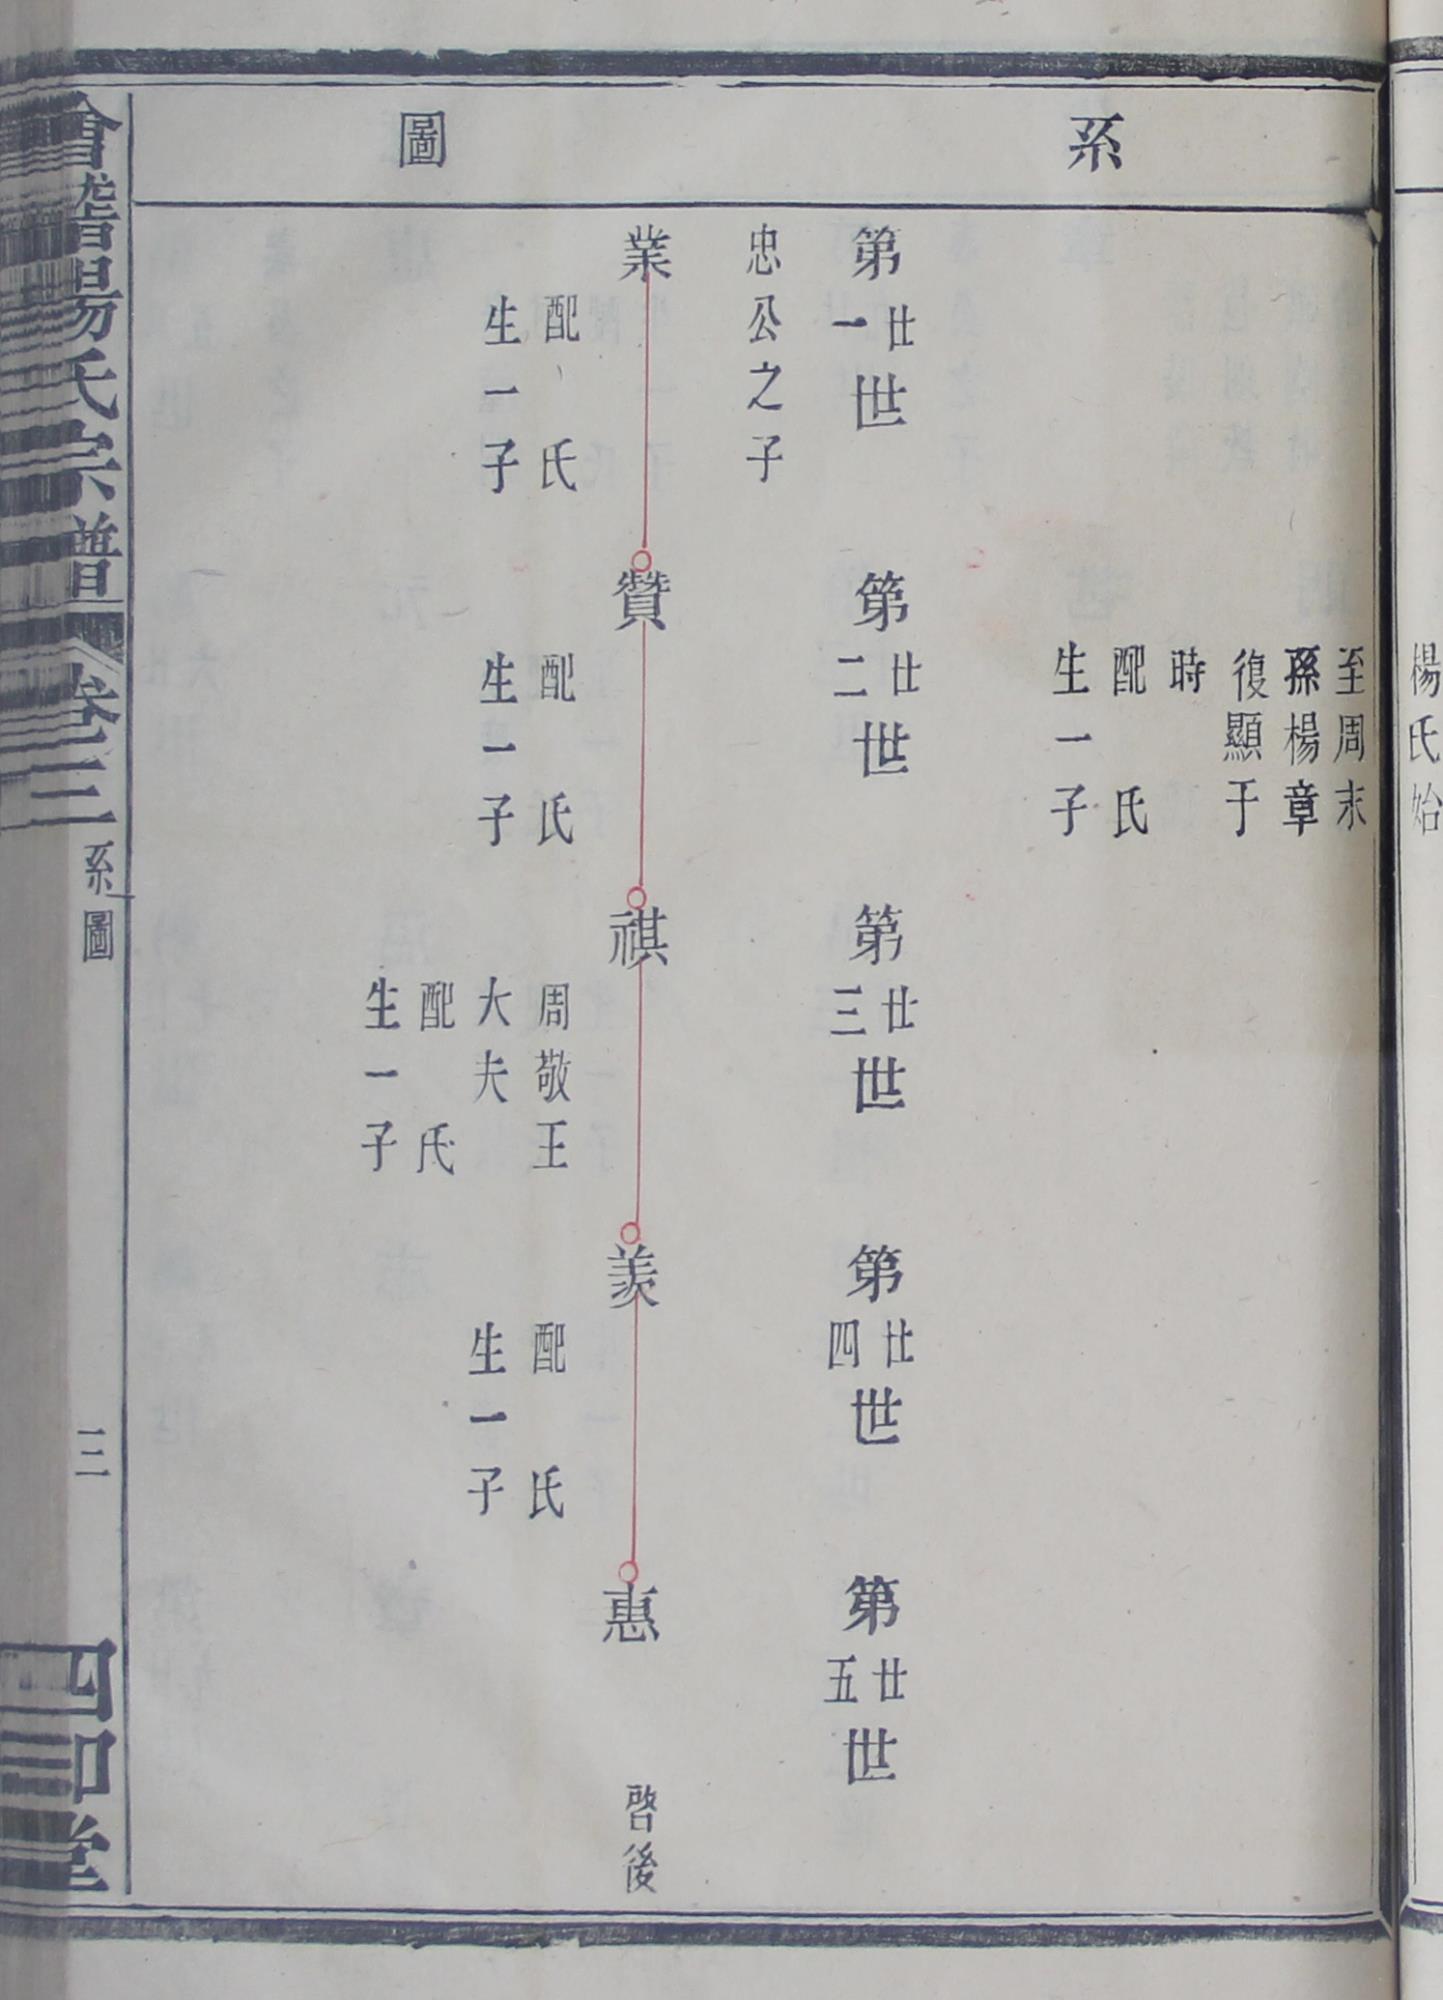 楊氏始
系圖
至周末
孫楊章
復顯于
時
配 氏
生一子
第廿一世
第廿二世
第廿三世
第廿四世
第廿五世
忠公之子
業
配 氏
生一子
贊
配 氏
生一子
祺
周敬王
大夫
配 氏
生一子
羨
配 氏
生一子
惠
啓後
會稽楊氏宗譜
卷三
系圖
三
四知堂